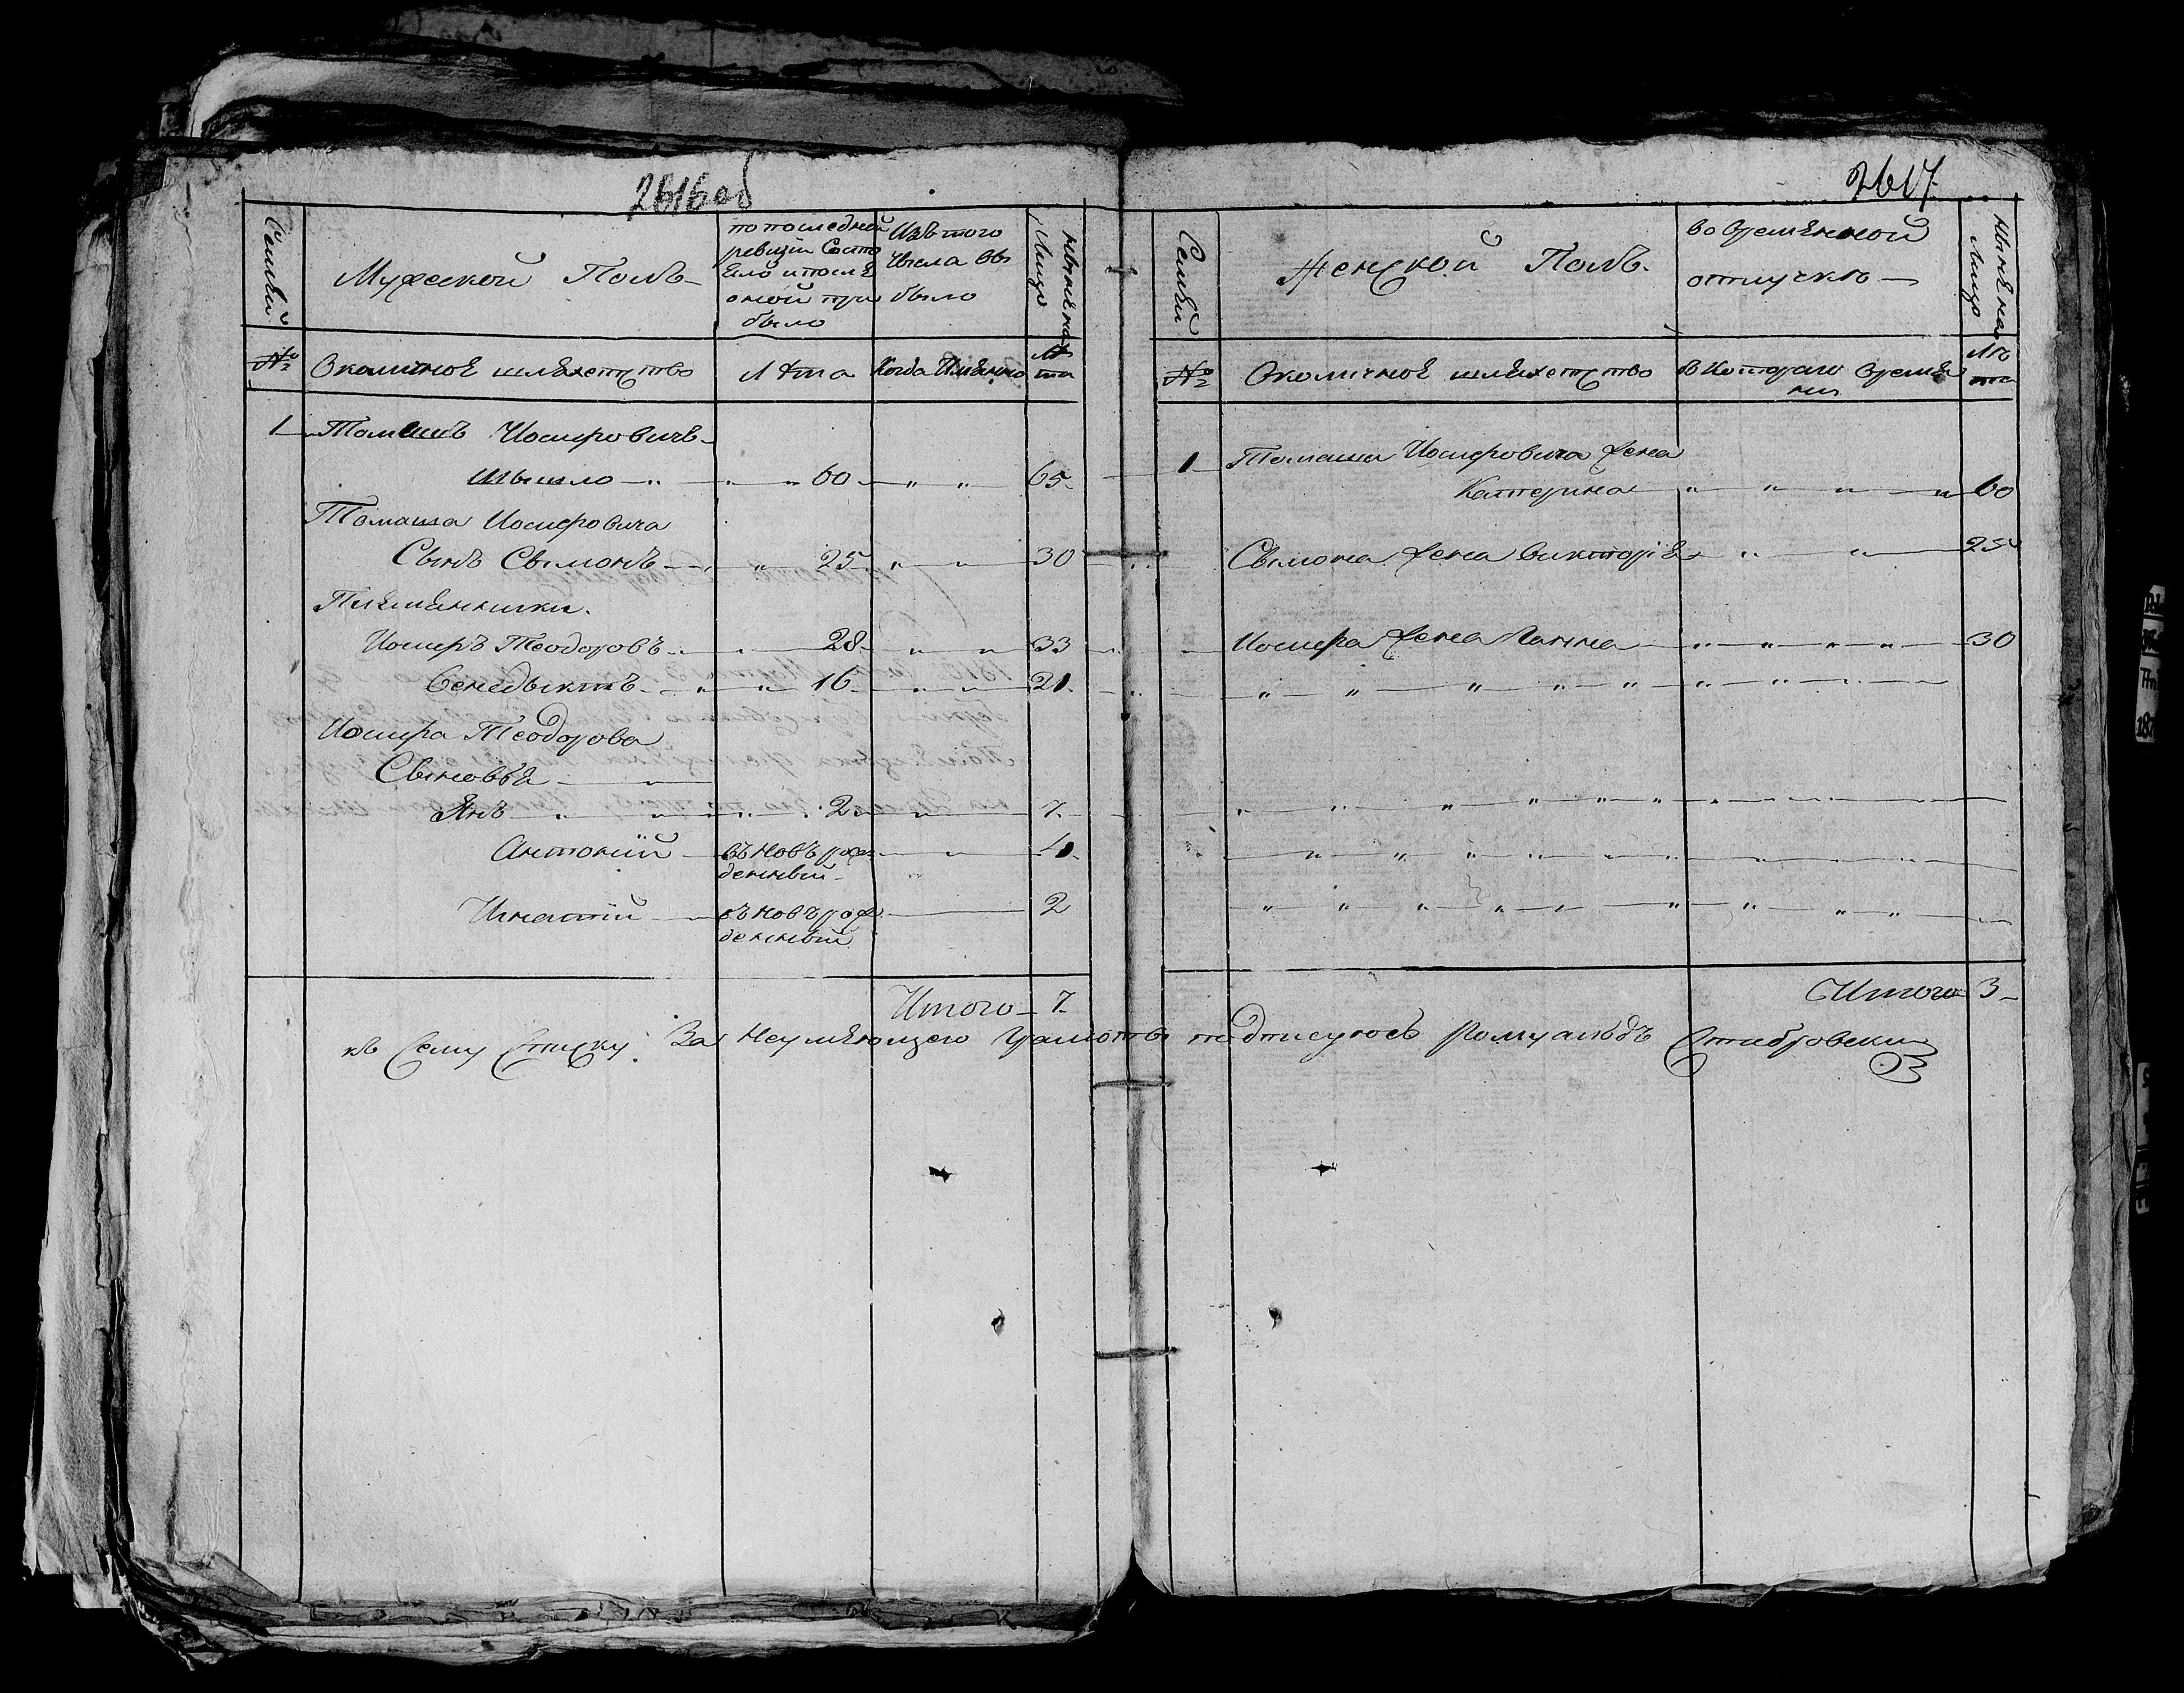 2616об
Семьи
Мужеской Полъ
по последней
ревизіи Состо
яло и после
оной при
было
Изъ того
Числа вы
было
Ныне на
Лицо
№
Околичное шляхетство
Лета
Когда Имянно
Ле
та
1 Томашъ Иосифовичъ
Шышло 60 65
Томаша Иосифовича
Сынъ Сымонъ 25 30
Племянники
Иосифъ Теодоровъ 28 33
Бенедыктъ 16 21
Иосифа Теодорова
Сыновья
Янъ 2 7
Антоній въ новъ рож 4
денный
Игнатій въ новъ рож 2
денный
Итого 7
2617
Семьи
Женской Полъ
во временной
отлучке
Ныне на
Лицо
№
Околичное шляхетство
В Которого Време
ни
Ле
та
1 Томаша Иосифовича жена
Катерина 60
Сымона жена Викторія 25
Иосифа жена Ганна 30
Итого 3
къ Сему Списку За Неумеющего Грамоты подписуюсь Ромуальдъ